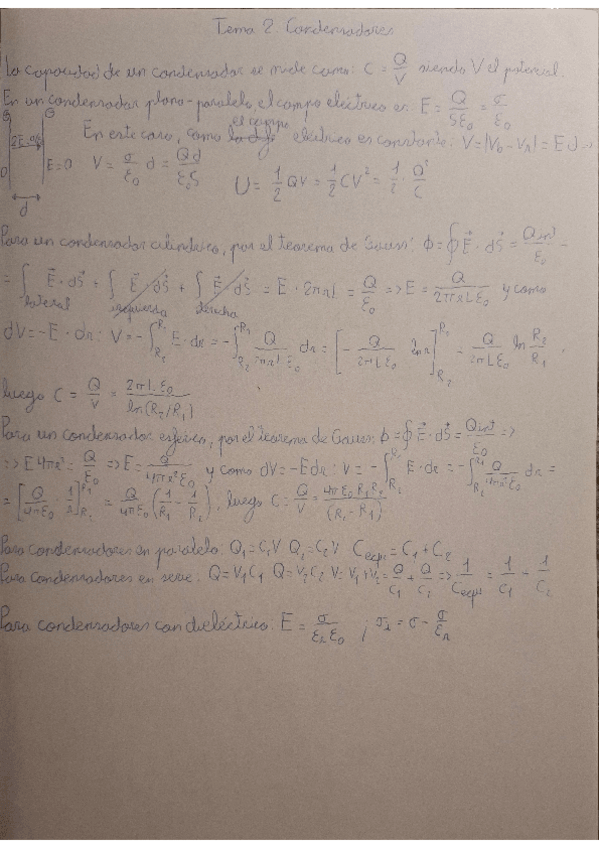 Tema 2. Condensadores
La capacidad de un condensador se mide como: C = Q/V siendo V el potencial.
En un condensador plano-paralelo, el campo eléctrico es: E = Q/(Sε₀) = σ/ε₀
E=0
d
En este caso, como el campo eléctrico es constante: V = |V₀ - V₁| = E d
V = σ/ε₀ d = Qd/(ε₀S) U = 1/2 QV = 1/2 CV² = 1/2 · Q²/C
Para un condensador cilíndrico, por el teorema de Gauss: ϕ = ∮ E⃗ · dS⃗ = Qint/ε₀ =
= ∫lateral E⃗ · dS⃗ + ∫izquierda E⃗ · dS⃗ + ∫derecha E⃗ · dS⃗ = E · 2πrL = Q/ε₀ => E = Q/(2πrLε₀) y como
dV = -E · dr: V = -∫ E · dr = -∫ Q/(2πrLε₀) dr = [-Q/(2πLε₀) ln r] = Q/(2πLε₀) ln R₂/R₁,
luego C = Q/V = 2πLε₀/ln(R₂/R₁)
Para un condensador esférico, por el teorema de Gauss: ϕ = ∮ E⃗ · dS⃗ = Qint/ε₀ =>
=> E4πr² = Q/ε₀ => E = Q/(4πr²ε₀) y como dV = -Edr: V = -∫ E · dr = -∫ Q/(4πr²ε₀) dr =
= [Q/(4πε₀) · 1/r] = Q/(4πε₀) (1/R₁ - 1/R₂), luego C = Q/V = 4πε₀R₁R₂/(R₂-R₁)
Para condensadores en paralelo: Q₁=C₁V Q₂=C₂V Cequi=C₁+C₂
Para condensadores en serie: Q=V₁C₁ Q=V₂C₂ V=V₁+V₂=Q/C₁+Q/C₂ => 1/Cequi = 1/C₁ + 1/C₂
Para condensadores con dieléctrico: E = σ/(εᵣε₀) ; = σ - σ/εᵣ